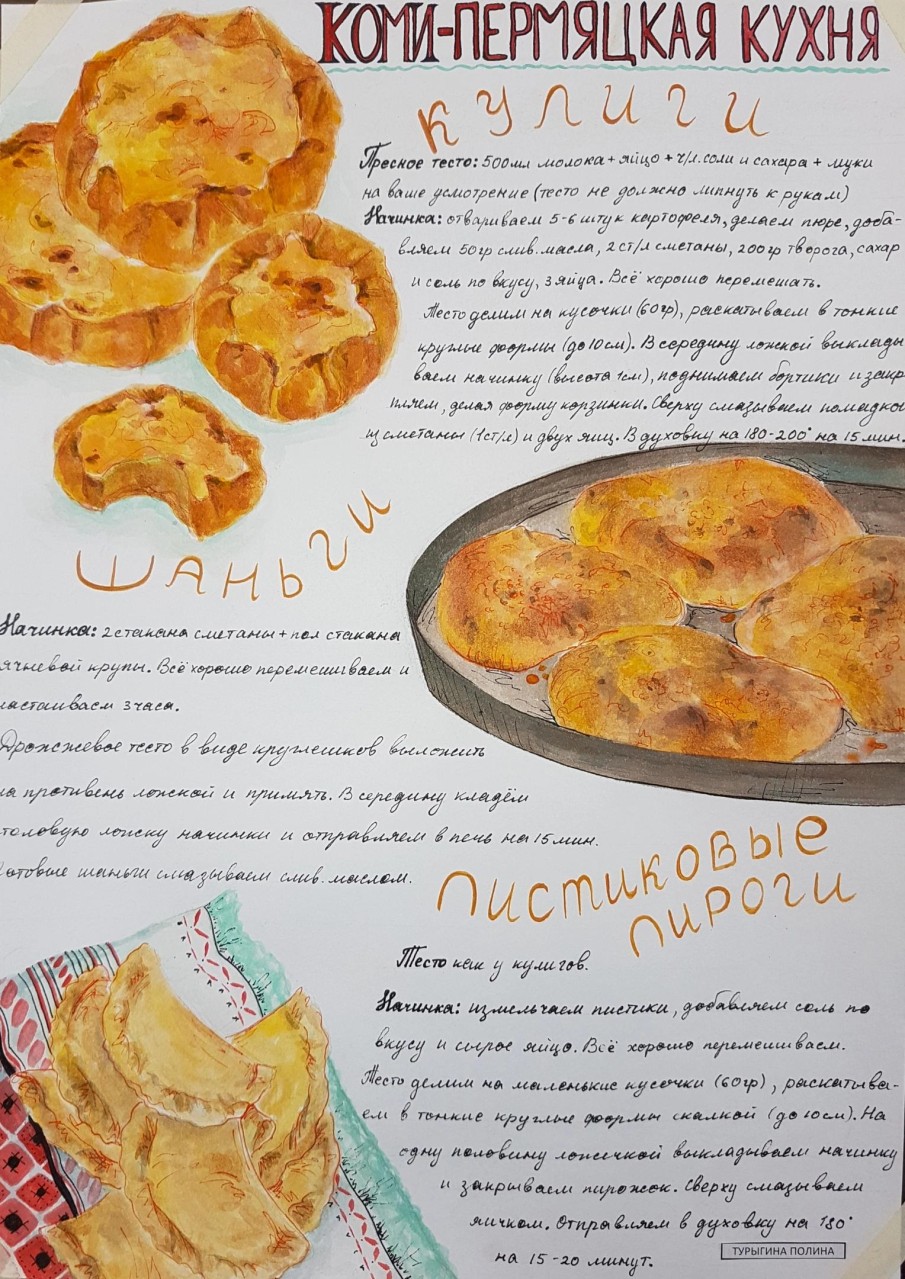 КОМИ-ПЕРМЯЦКАЯ КУХНЯ
КУЛИГИ
Пресное тесто: 500мл молока + яйцо + ч/л. соли и сахара + муки
на ваше усмотрение (тесто не должно липнуть к рукам)
Начинка: отвариваем 5-6 штук картофеля, делаем пюре, доба-
вляем 50гр слив. масла, 2 ст/л сметаны, 200гр творога, сахар
и соль по вкусу, 3 яйца. Всё хорошо перемешать.
Тесто делим на кусочки (60гр), раскатываем в тонкие
круглые формы (до 10см). В середину ложкой выклады
ваем начинку (высота 1см), поднимаем бортики и закр
пляем, делая форму корзинки. Сверху смазываем помадкой
из сметаны (1ст/л) и двух яиц. В духовку на 180-200° на 15 мин.
ШАНЬГИ
Начинка: 2 стакана сметаны + пол стакана
ячневой крупы. Всё хорошо перемешиваем и
настаиваем 3 часа.
Дрожжевое тесто в виде круглешков выложить
на противень ложкой и примять. В середину кладём
столовую ложку начинки и отправляем в печь на 15 мин.
Готовые шаньги смазываем слив. маслом.
ПИСТИКОВЫЕ
ПИРОГИ
Тесто как у кулигов.
Начинка: измельчаем пистики, добавляем соль по
вкусу и сырое яйцо. Всё хорошо перемешиваем.
Тесто делим на маленькие кусочки (60гр), раскатыва-
ем в тонкие круглые формы скалкой (до 10см). На
одну половину ложечкой выкладываем начинку
и закрываем пирожок. Сверху смазываем
яичком. Отправляем в духовку на 180°
на 15-20 минут.
ТУРЫГИНА ПОЛИНА